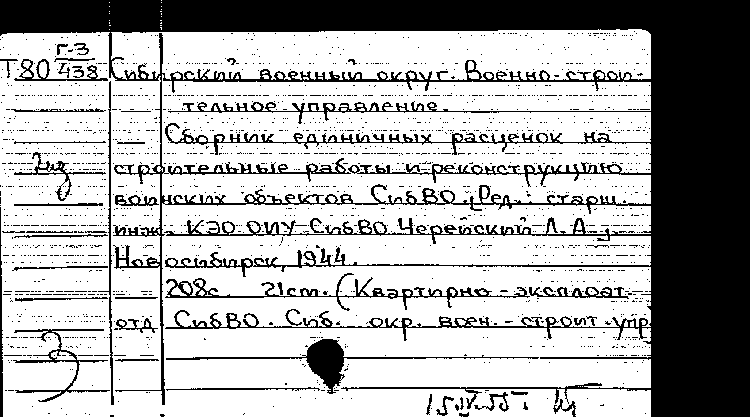 Г-3
Т80 438 Сибирский военный округ. Военно-строи-
тельное управление.
Сборник единичных расценок на
строительные работы и реконструкцию
воинских объектов СибВО. [Ред.: старш.
инж. КЭО ОИУ СибВО Черейский Л.А.].
Новосибирск, 1944.
208с. 21см. (Квартирно-эксплоат.
отд СибВО. Сиб. окр. воен.-строит.упр
3
15.IV.55г.